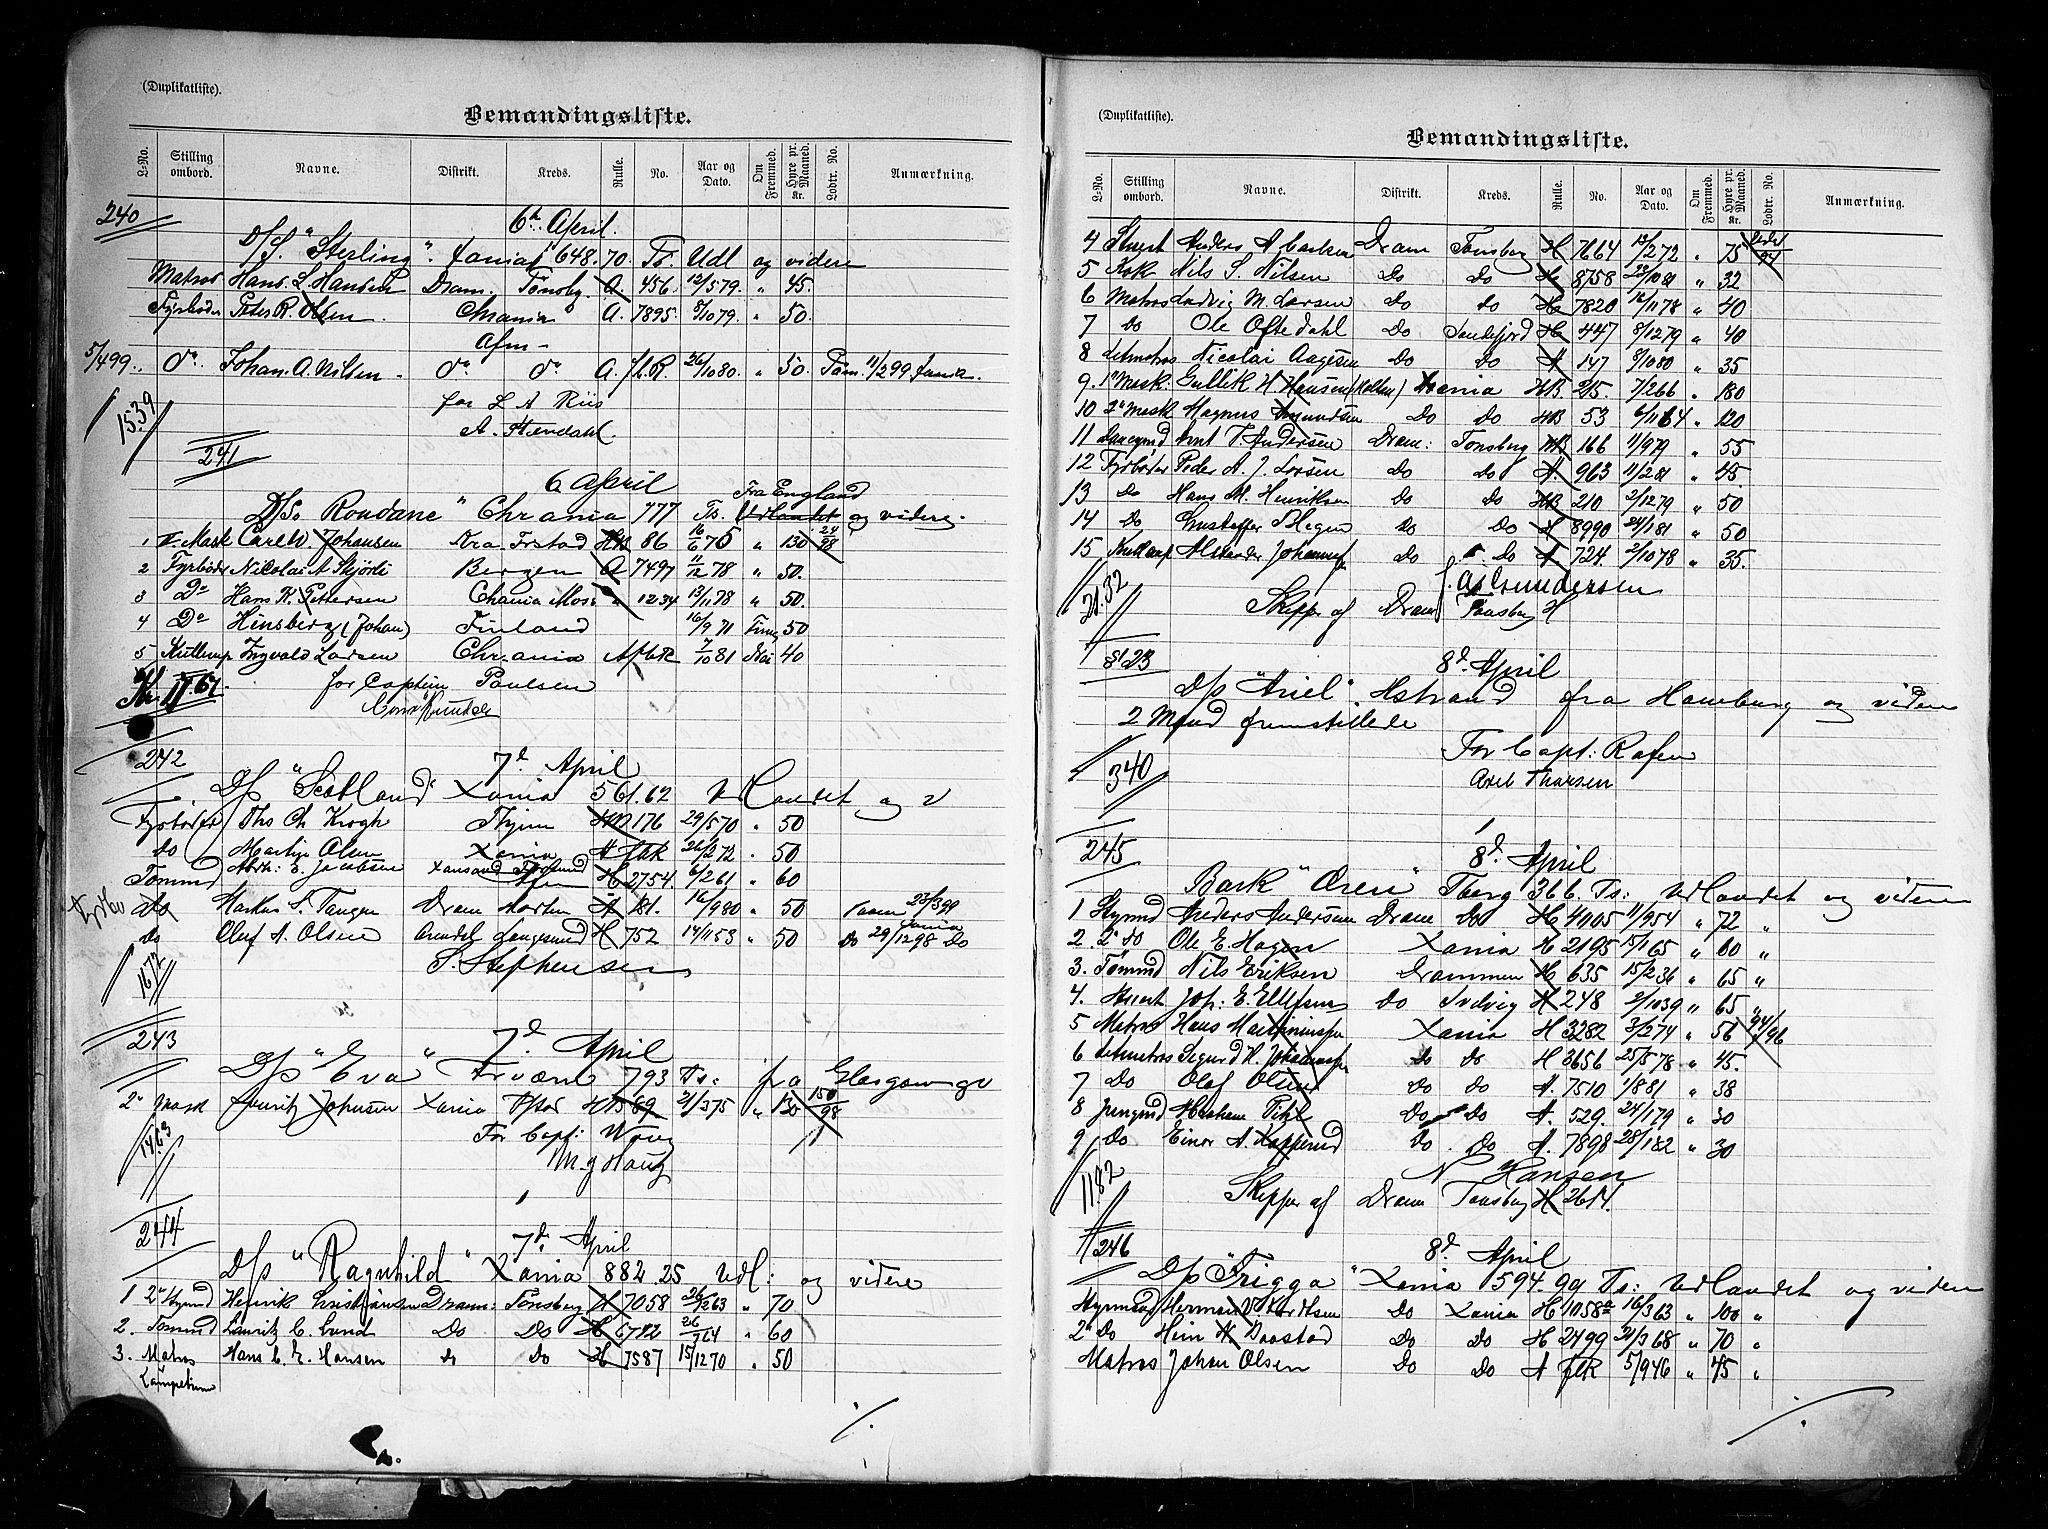 (Duplikatliste).
Bemandingsliste.
L-No. Stilling ombord. Navne. Distrikt. Kreds. Rulle. No. Aar og Dato. Om Fremmed. Hyre pr. Maaned. Kr. Lodtr. No. Anmærkning.
240 6te April.
D/S. "Sterling". Xania 648.70. Ts. Udl og videre
Matros Hans. L. Hansen Dram. Tønsbg. A. 456. 12/5 79. " 45.
Fyrbøder Peter R. Olsen. Chrania A. 7895. 8/10 79. " 50.
Afm-
5/4 99. do. Johan. A. Nilsen. do. do. A. flR. 26/10 80. " 50. Paam. 11/2 99
for L A Riis
A. Stendahl.
15.39
241
6 April Fra England
D/S. Rondane " Chrania 777 Ts. Udlandet og videre.
1 Mask Carl W Johansen Kra. Frstad HB 86 16/6 75 " 130 24/98
2 Fyrbøder Nicolai A Skjørli Bergen A 7497 11/12 78 " 50.
3 Do Hans K. Pettersen Chania Moss " 1234 13/11 78 " 50.
4 Do Hinsberg (Johan) Finland 16/9 71 50
5 Kullemp Ingvald Larsen Chrania AflR 7/10 81 Nei 40
Kr. 17.67. for Captein Paulsen
242
7d April
D/S "Scotland" Xania 561.62 Udlandet og v
Fyrbøder Ths Ch Krogh Thjem 176 29/5 70 " 50
Do Martin Olsen Xania A flR 26/2 72 " 50
Tømmd Abrh: E. Jacobsen Xansand H 2754. 6/2 61 " 60
Fyrbø Do Markus S. Tangen Dram Horten A 181. 16/9 80 " 50 Paam 23/3 99
Do Oluf A. Olsen Arendal Langesund H 752 14/11 53 " 50 Do 29/12 98 Do
S. Stephensen
16.72
243
7d. April
D/S "Eva" Trværn 793 Ts. fra Glasgow
2n Mask Lauritz Johnsen Xania Aftor HB 69. 21/3 75 " 130 150/98
For Capt: Woug
M. J. Haug
14.63
244
7d. April
D/S "Ragnhild" Xania 882.25 Udl: og videre
1 2n Stymd Henrik Christiansen Dram: Tønsberg H 7058 26/12 63 " 70
2. Tømmd Lauritz C. Lund Do Do H 6782 26/9 64 " 60
3. Matros Hans C. E. Hansen Do Do H 7587 15/12 70 " 50
Lampetrim
%
(Duplikatliste).
Bemandingsliste.
L-No. Stilling ombord. Navne. Distrikt. Kreds. Rulle. No. Aar og Dato. Om Fremmed. Hyre pr. Maaned. Kr. Lodtr. No. Anmærkning.
4 Stuert Anders A Carlsen Dram Tønsberg H 7664 13/2 72 " 75
5 Kok Nils S. Nilsen Do Do H 8758 23/10 81 " 32
6 Matros Ludvig M. Larsen Do Do H 7820 16/11 78 " 40
7 Do Ole Oftedahl Do Sandefjord H 447 8/12 79 " 40
8 Letmatros Nicolai Aagesen Do Do A 147 8/10 80 " 35
9. 1n Mask: Gullik H Hansen (Holtan) Xania HB. 215. 7/2 66 " 180
10 2n Mask Magnus Amundsen Do Do HB 53 6/11 64 " 120
11 Dunkymd Arnt T. Andersen Dram: Tønsberg HB 166 11/9 79 " 55
12 Fyrbøder Peder A. J. Larsen Do Do A. 963 11/2 81 " 45
13 Do Hans M. Henriksen Do Do HB 210 2/12 79 " 50
14 Do Gustaffer Skegen Do Do H 8990 24/1 81 " 50
15 Kullemp Alexander Johannesen Do " Do A 724. 2/10 78 " 35.
J. A. Gundersen
Skipper af Dram Tønsberg H
21.32
8123
8d. April
D/S "Ariel" Hstrand fra Hamburg og videre
2 Mand fremstillede
For Capt: Rafen
Axel Thorsen
3 40
245
8d. April
Bark "Ören" Tberg 366 Ts: Udlandet og videre
1 Stymd Anders Andersen Dram Do H 4005 11/9 54 " 72 "
2. 2n do Ole E. Hagen Xania H 2195 15/1 65 " 60 "
3. Tømmd Nils Eriksen Drammen H 635 15/2 36 " 65 "
4. Stuert Joh: E. Ellefsen Do Svelvig H 248 2/10 39 " 65 "
5 Matros Hans Martiniussen Xania H 3282 3/2 74 " 50 94/96
6 Letmatros Sigurd H. Johannesen Do Do H 3656 25/5 78 " 45.
7 Do Olaf Olsen Do Do A. 7510 1/8 81 " 38
8 Jungmd Abraham Pihl Do Do A. 529. 24/1 79 " 30
9 Do Einar A. Kopperud Do Do A. 7898 28/1 82 " 30
N Hansen
Skipper af Dram Tønsberg H 2611.
11.82
246
8d. April
D/S "Frigga" Xania 594.99 Ts: Udlandet og videre
Stymand Herman V Karlsen Do Xania H 1058 16/3 63 " 100 "
2n Do Hein H Baastad Do Do H 2499 21/3 68 " 70 "
Matros Johan Olsen Do Do A flR 5/9 46 " 45 "
%